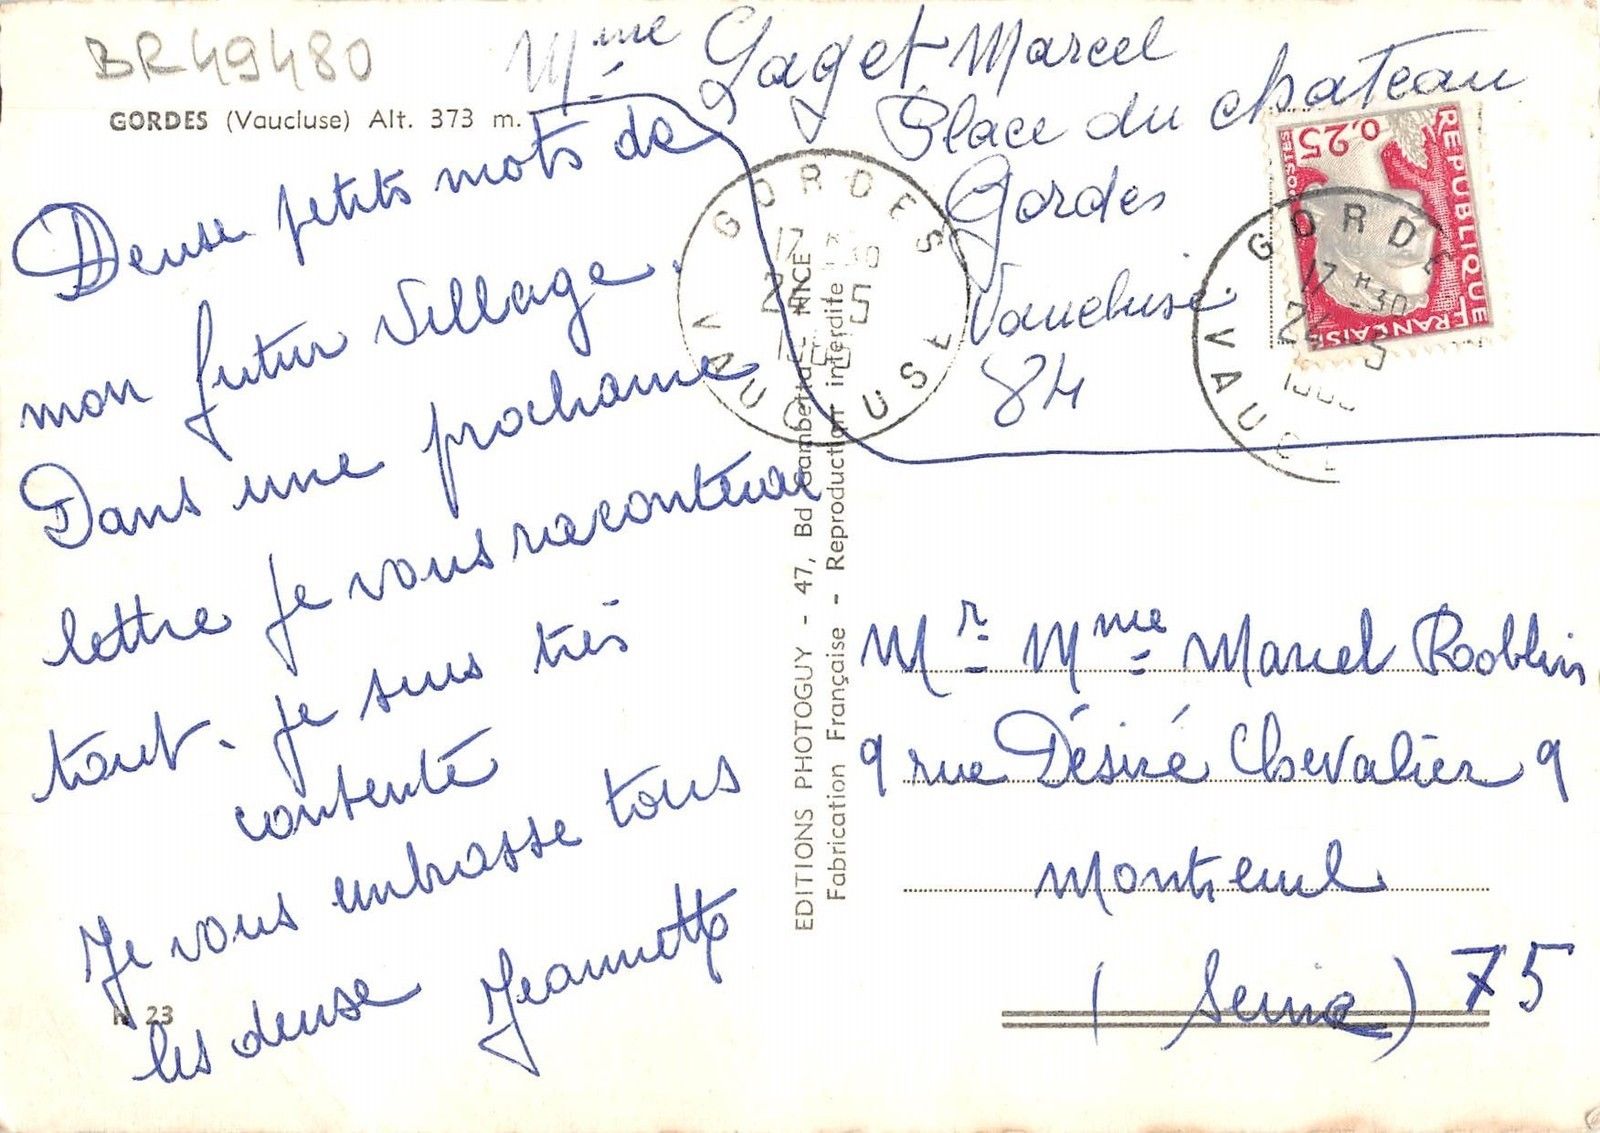 BR49480
GORDES (Vaucluse) Alt. 373 m.
Mme Gaget Marcel
Place du chateau
Gordes
Vaucluse.
84
Deuse petits mots de
mon futur village.
Dans une prochaine
lettre je vous raconterai
tout. je suis très
contente
Je vous embrasse tous
les deuse Jeannette
N 23
EDITIONS PHOTOGUY - 47, Bd Gambetta - NICE
Fabrication Française - Reproduction interdite
GORDES
17 H30
24 5
VAUCLUSE
REPUBLIQUE FRANÇAISE
0,25
POSTES
GORDES
17 H30
24 5
VAUCL
Mr Mme Marcel Roblin
9 rue Désiré Chevalier 9
Montreuil
(Seine) 75